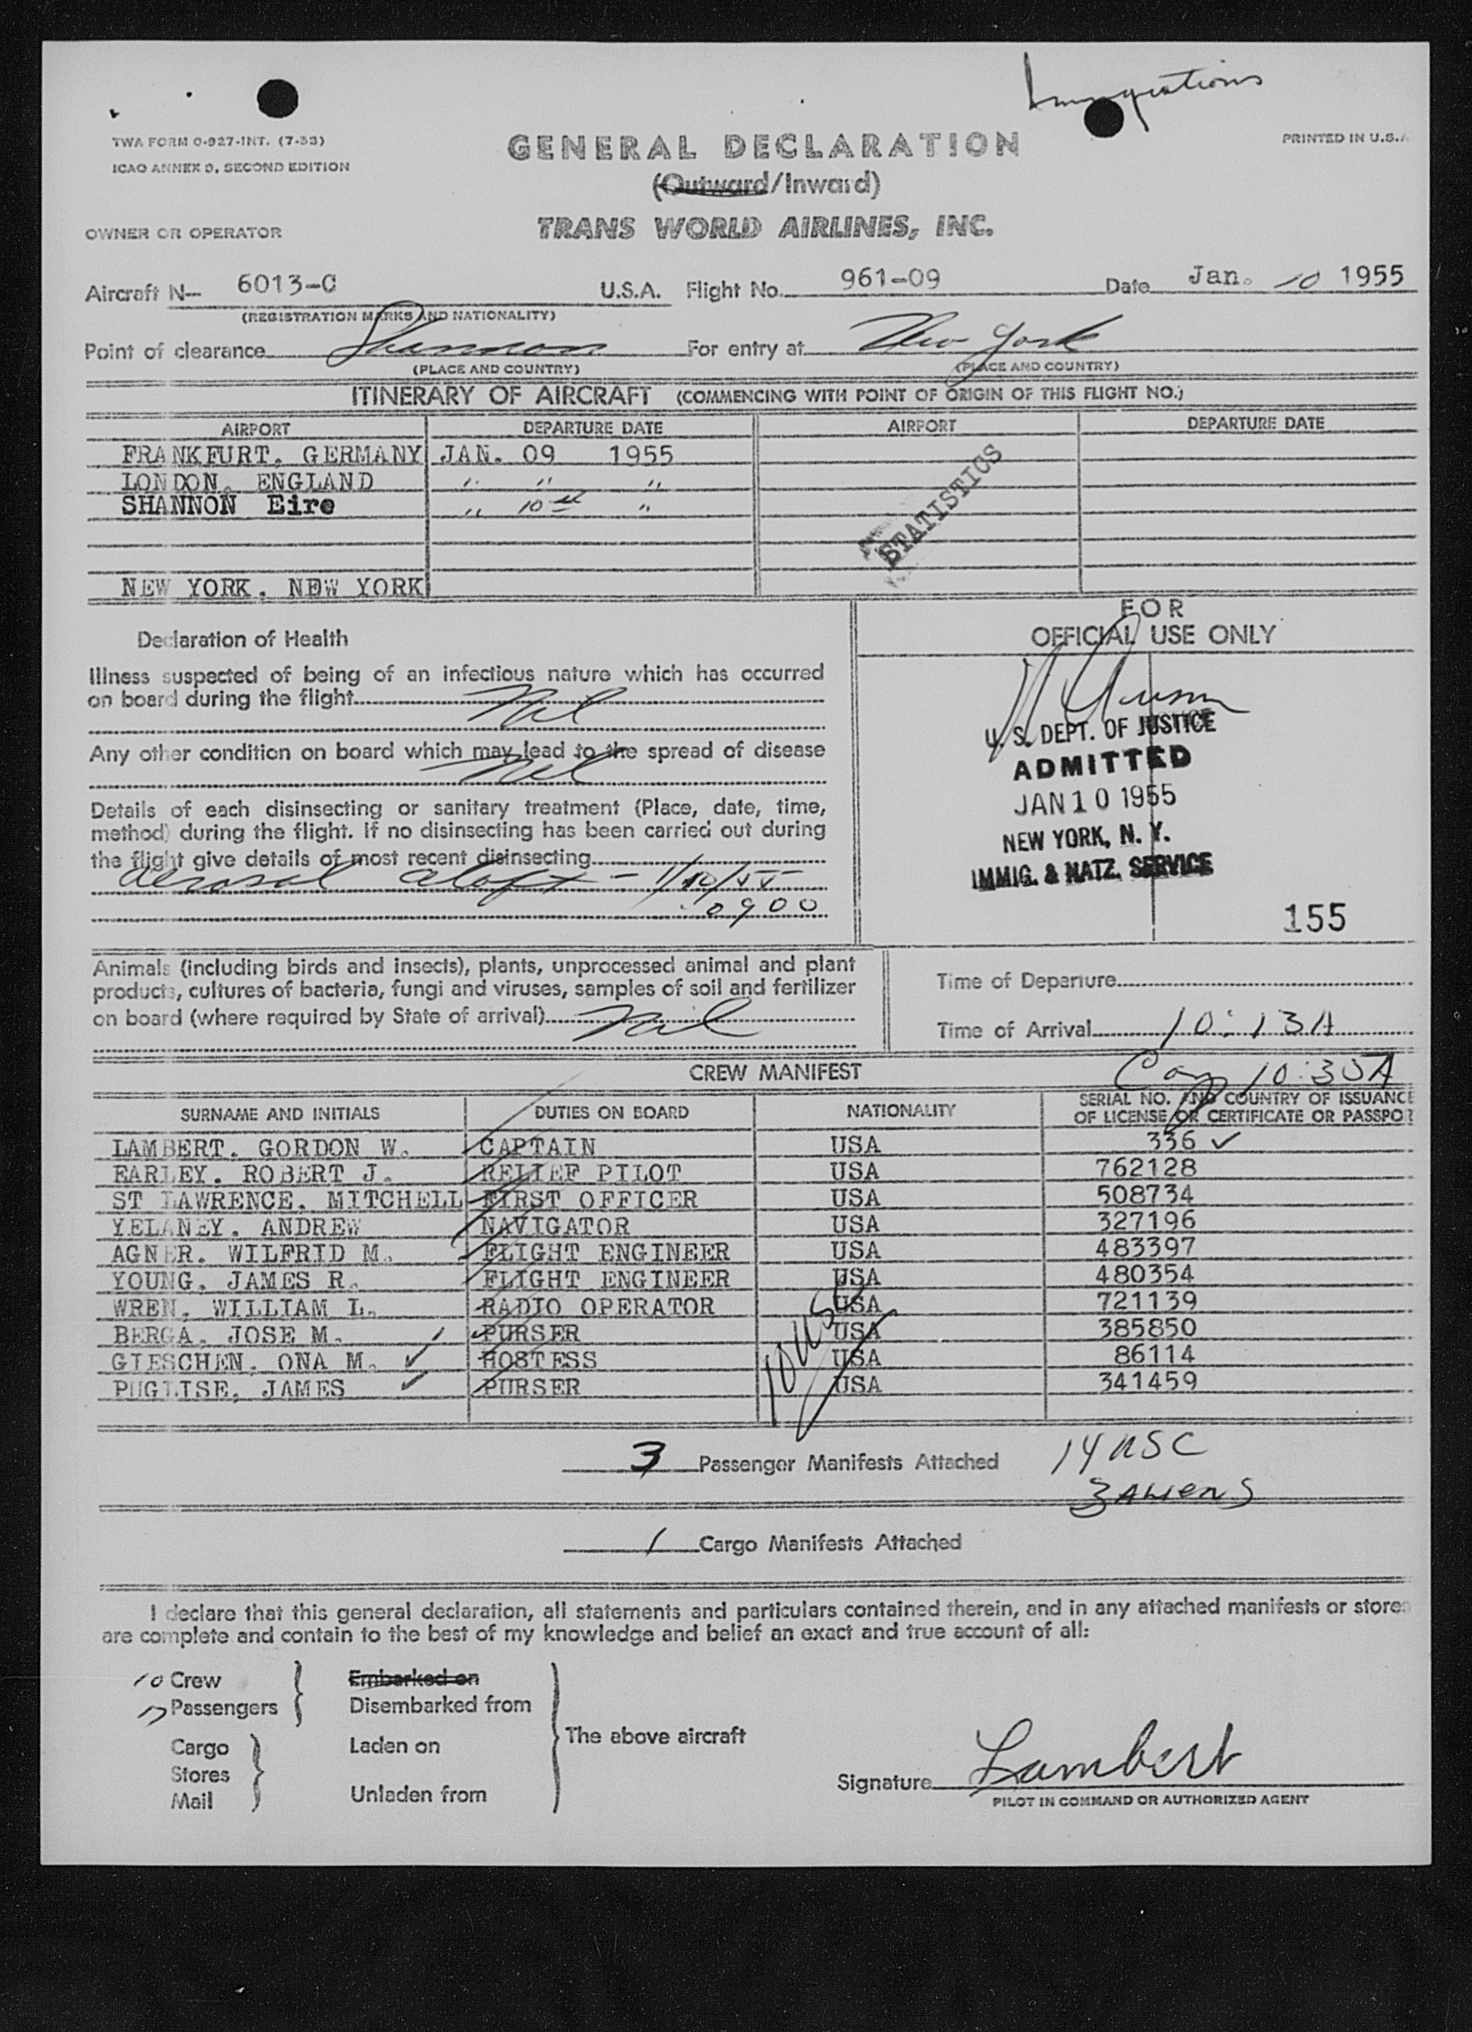 Immigrations
TWA FORM O-927-INT. (7-53)
ICAO ANNEX 9, SECOND EDITION
PRINTED IN U.S.A
GENERAL DECLARATION
(Outward/Inward)
OWNER OR OPERATOR
TRANS WORLD AIRLINES, INC.
Aircraft N- 6013-C U.S.A. Flight No. 961-09 Date Jan. 10 1955
(REGISTRATION MARKS AND NATIONALITY)
Point of clearance Shannon For entry at New York
(PLACE AND COUNTRY) (PLACE AND COUNTRY)
ITINERARY OF AIRCRAFT (COMMENCING WITH POINT OF ORIGIN OF THIS FLIGHT NO.)
AIRPORT DEPARTURE DATE AIRPORT DEPARTURE DATE
FRANKFURT, GERMANY JAN. 09 1955
LONDON, ENGLAND " " "
SHANNON Eire " 10th "
STATISTICS
NEW YORK, NEW YORK
FOR
OFFICIAL USE ONLY
Declaration of Health
Illness suspected of being of an infectious nature which has occurred
on board during the flight Nil
Any other condition on board which may lead to the spread of disease
Nil
Details of each disinsecting or sanitary treatment (Place, date, time,
method) during the flight. If no disinsecting has been carried out during
the flight give details of most recent disinsecting
aerosol aloft - 1/10/55
0900
U. S. DEPT. OF JUSTICE
ADMITTED
JAN 10 1955
NEW YORK, N. Y.
IMMIG. & NATZ. SERVICE
155
Animals (including birds and insects), plants, unprocessed animal and plant
products, cultures of bacteria, fungi and viruses, samples of soil and fertilizer
on board (where required by State of arrival) Nil
Time of Departure
Time of Arrival 10:13A
10:35A
CREW MANIFEST
SURNAME AND INITIALS DUTIES ON BOARD NATIONALITY SERIAL NO. AND COUNTRY OF ISSUANCE
OF LICENSE OR CERTIFICATE OR PASSPORT
LAMBERT, GORDON W. CAPTAIN USA 336 ✓
EARLEY, ROBERT J. RELIEF PILOT USA 762128
ST LAWRENCE, MITCHELL FIRST OFFICER USA 508734
YELANEY, ANDREW NAVIGATOR USA 327196
AGNER, WILFRID M. FLIGHT ENGINEER USA 483397
YOUNG, JAMES R. FLIGHT ENGINEER USA 480354
WREN, WILLIAM L. RADIO OPERATOR USA 721139
BERGA, JOSE M. PURSER USA 385850
GIESCHEN, ONA M. ✓ HOSTESS USA 86114
PUGLISE, JAMES ✓ PURSER USA 341459
10 USC
3 Passenger Manifests Attached 14 USC
3 ALIENS
1 Cargo Manifests Attached
I declare that this general declaration, all statements and particulars contained therein, and in any attached manifests or stores
are complete and contain to the best of my knowledge and belief an exact and true account of all:
10 Crew Embarked on
17 Passengers Disembarked from
The above aircraft
Cargo Laden on
Stores
Mail Unladen from
Signature Lambert
PILOT IN COMMAND OR AUTHORIZED AGENT